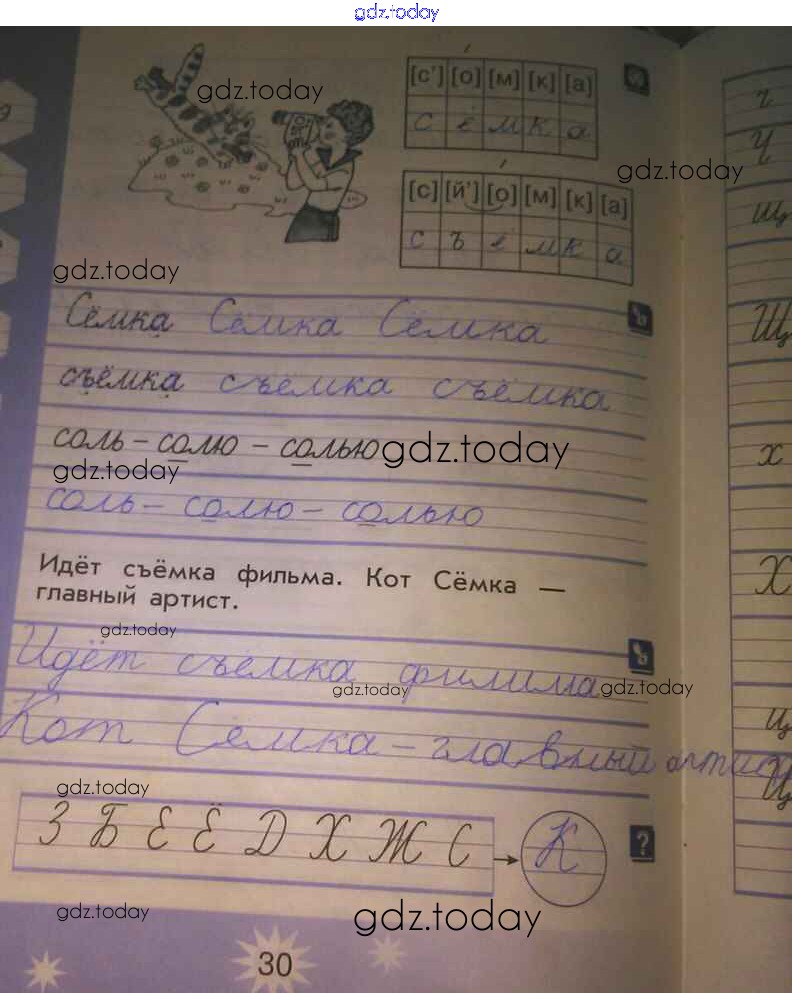 gdz.today
gdz.today
[с'] [о] [м] [к] [а]
с ё м к а
gdz.today
[с] [й'] [о] [м] [к] [а]
с ъ ё м к а
gdz.today
Сёмка Сёмка Сёмка
съёмка съёмка съёмка
соль – солю – солью
gdz.today
gdz.today
соль – солю – солью
Идёт съёмка фильма. Кот Сёмка —
главный артист.
gdz.today
Идёт съёмка фильма
gdz.today
gdz.today
Кот Сёмка – главный артис
gdz.today
З Б Е Ё Д Х Ж С К
?
gdz.today
gdz.today
30
г
Ч
щ
Щ
х
Х
ц
Ц